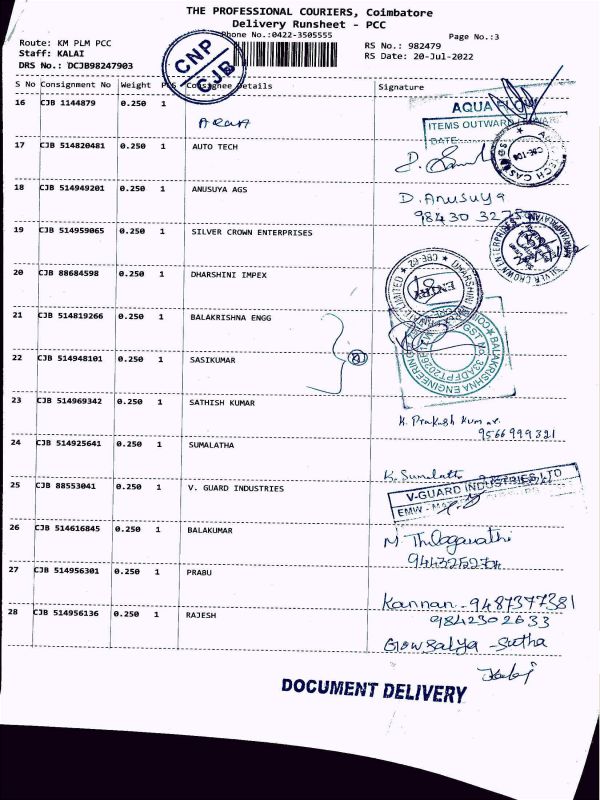 THE PROFESSIONAL COURIERS, Coimbatore
Delivery Runsheet - PCC
Phone No.:0422-3505555 Page No.:3
Route: KM PLM PCC RS No.: 982479
Staff: KALAI RS Date: 20-Jul-2022
DRS No.: DCJB98247903
CNP
CJB
S No Consignment No Weight PCS Consignee Details Signature
16 CJB 1144879 0.250 1
AQUA FLOW
ITEMS OUTWARD
DATE:
17 CJB 514820481 0.250 1 AUTO TECH
18 CJB 514949201 0.250 1 ANUSUYA AGS
D. Anusuya
19 CJB 514959065 0.250 1 SILVER CROWN ENTERPRISES
SILVER CROWN ENTERPRISES
20 CJB 88684598 0.250 1 DHARSHINI IMPEX
ENTRY
21 CJB 514819266 0.250 1 BALAKRISHNA ENGG
22 CJB 514948101 0.250 1 SASIKUMAR
BALAKRISHNA ENGINEERING
23 CJB 514969342 0.250 1 SATHISH KUMAR
K. Prakash Kumar.
9566999321
24 CJB 514925641 0.250 1 SUMALATHA
K. Sumalatha
25 CJB 88553041 0.250 1 V. GUARD INDUSTRIES
V-GUARD INDUSTRIES LTD
26 CJB 514616845 0.250 1 BALAKUMAR
M. Thilagavathi
27 CJB 514956301 0.250 1 PRABU
Kannan - 9487377381
9842302633
28 CJB 514956136 0.250 1 RAJESH
Gowsalya - Sutha
Kalai
DOCUMENT DELIVERY